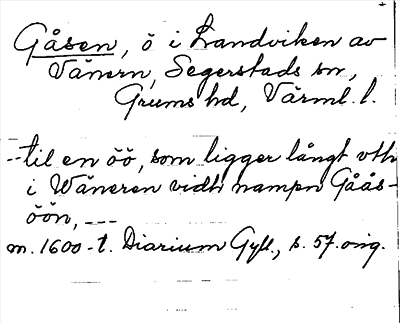 Gåsen, ö i Landviken av
Vänern, Segerstads sn,
Grums hd, Värml. l.
--til en öö, som ligger långt vth
i Wäneren vidh nampn Gåås-
öön, ---
m. 1600-t. Diarium Gyll., s. 57. orig.